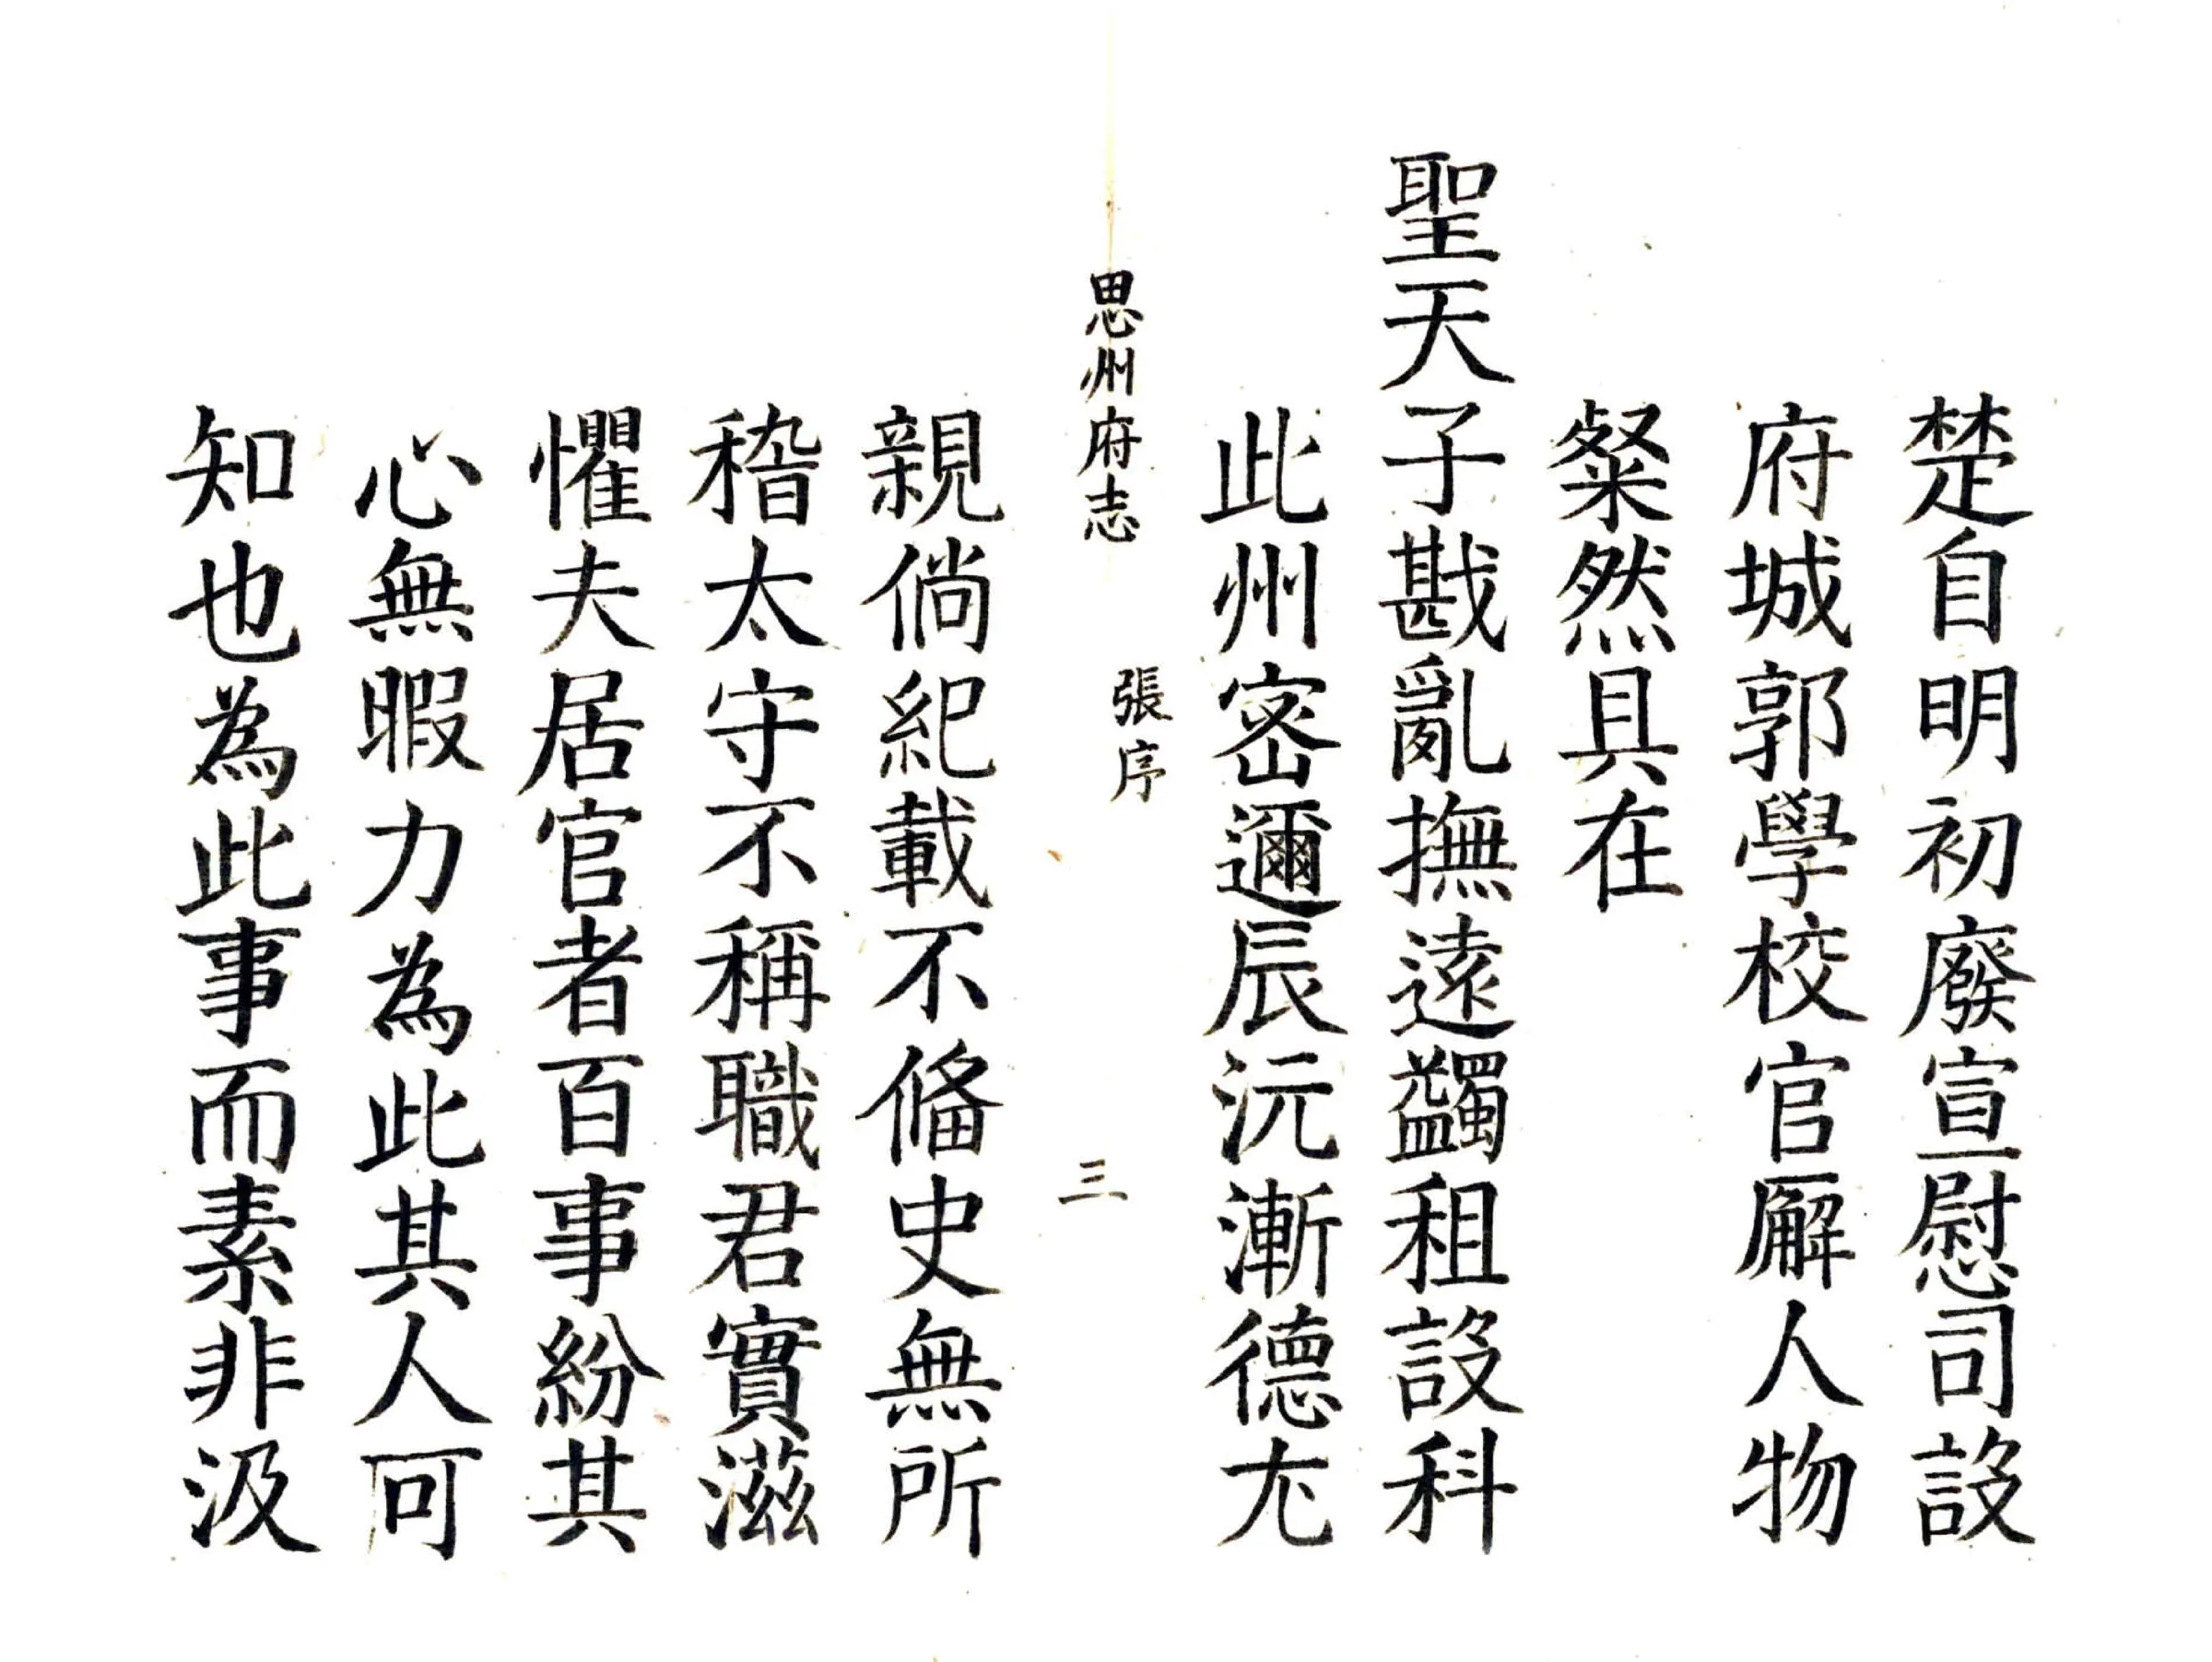 楚自明初廢宣慰司設
府城郭學校官廨人物
粲然具在
聖天子戡亂撫遠蠲租設科
此州密邇辰沅漸德尤
思州府志
張序
三
親倘紀載不俻史無所
稽太守不稱職君實滋
懼夫居官者百事紛其
心無暇力為此其人可
知也為此事而素非汲